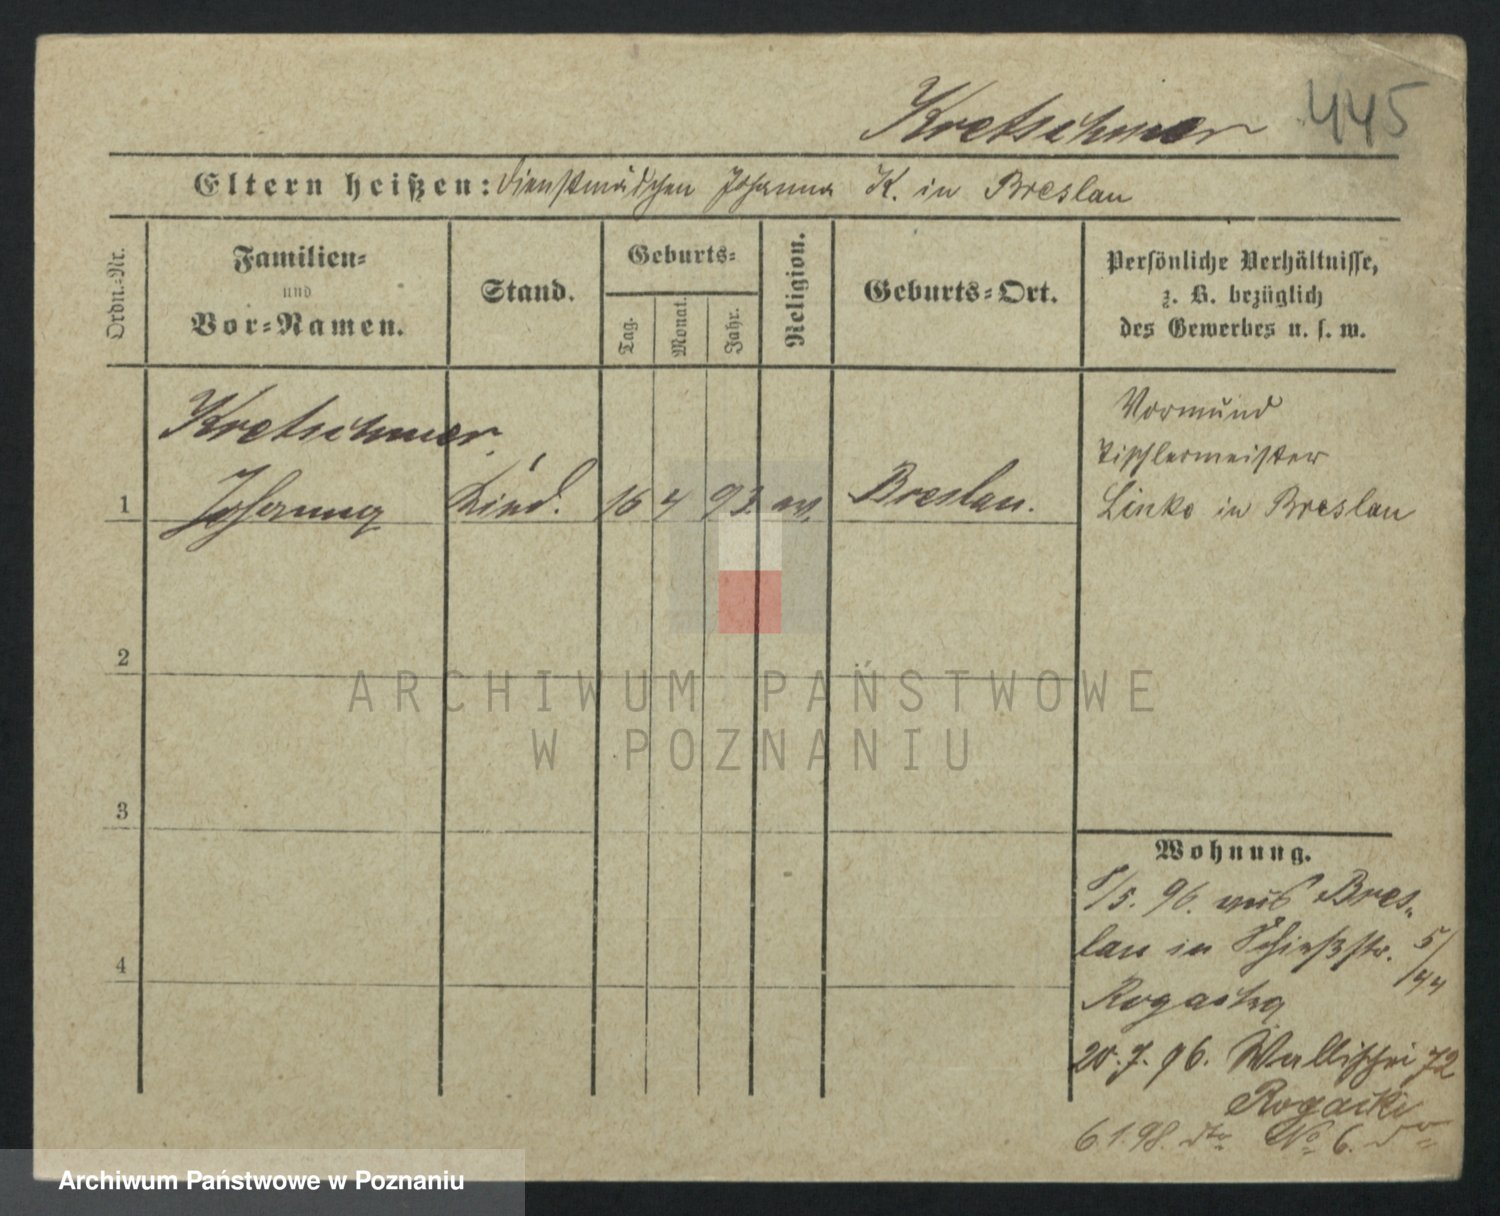 Kretschmer 445
Eltern heißen: Dienstmädchen Johanna K. in Breslau
Ordn.-Nr.
Familien-
und
Vor-Namen.
Stand.
Geburts-
Tag.
Monat.
Jahr.
Religion.
Geburts-Ort.
Persönliche Verhältnisse,
z. B. bezüglich
des Gewerbes u. s. w.
Kretschmer
1 Johanna Kind. 16 4 93 ev. Breslau.
Vormund
Tischlermeister
Linke in Breslau
2
3
4
ARCHIWUM PAŃSTWOWE
W POZNANIU
Wohnung.
/5. 96. aus Bres-
lau in Schießstr. 5/
Rogacka
20. 7. 96. Wallischei 72
Rogacki
6.1.98. dto No 6. do
Archiwum Państwowe w Poznaniu